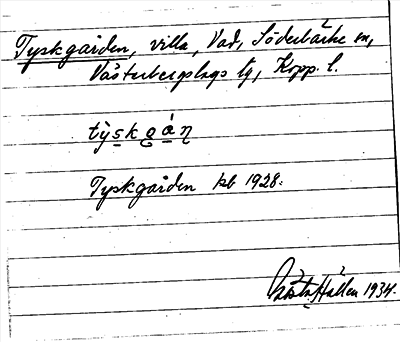 Tyskgården, villa, Vad, Söderbärke sn,
Västerbergslags tg, Kopp. l.
tyskgån
Tyskgården kb 1928.
Gösta Hallén 1934.